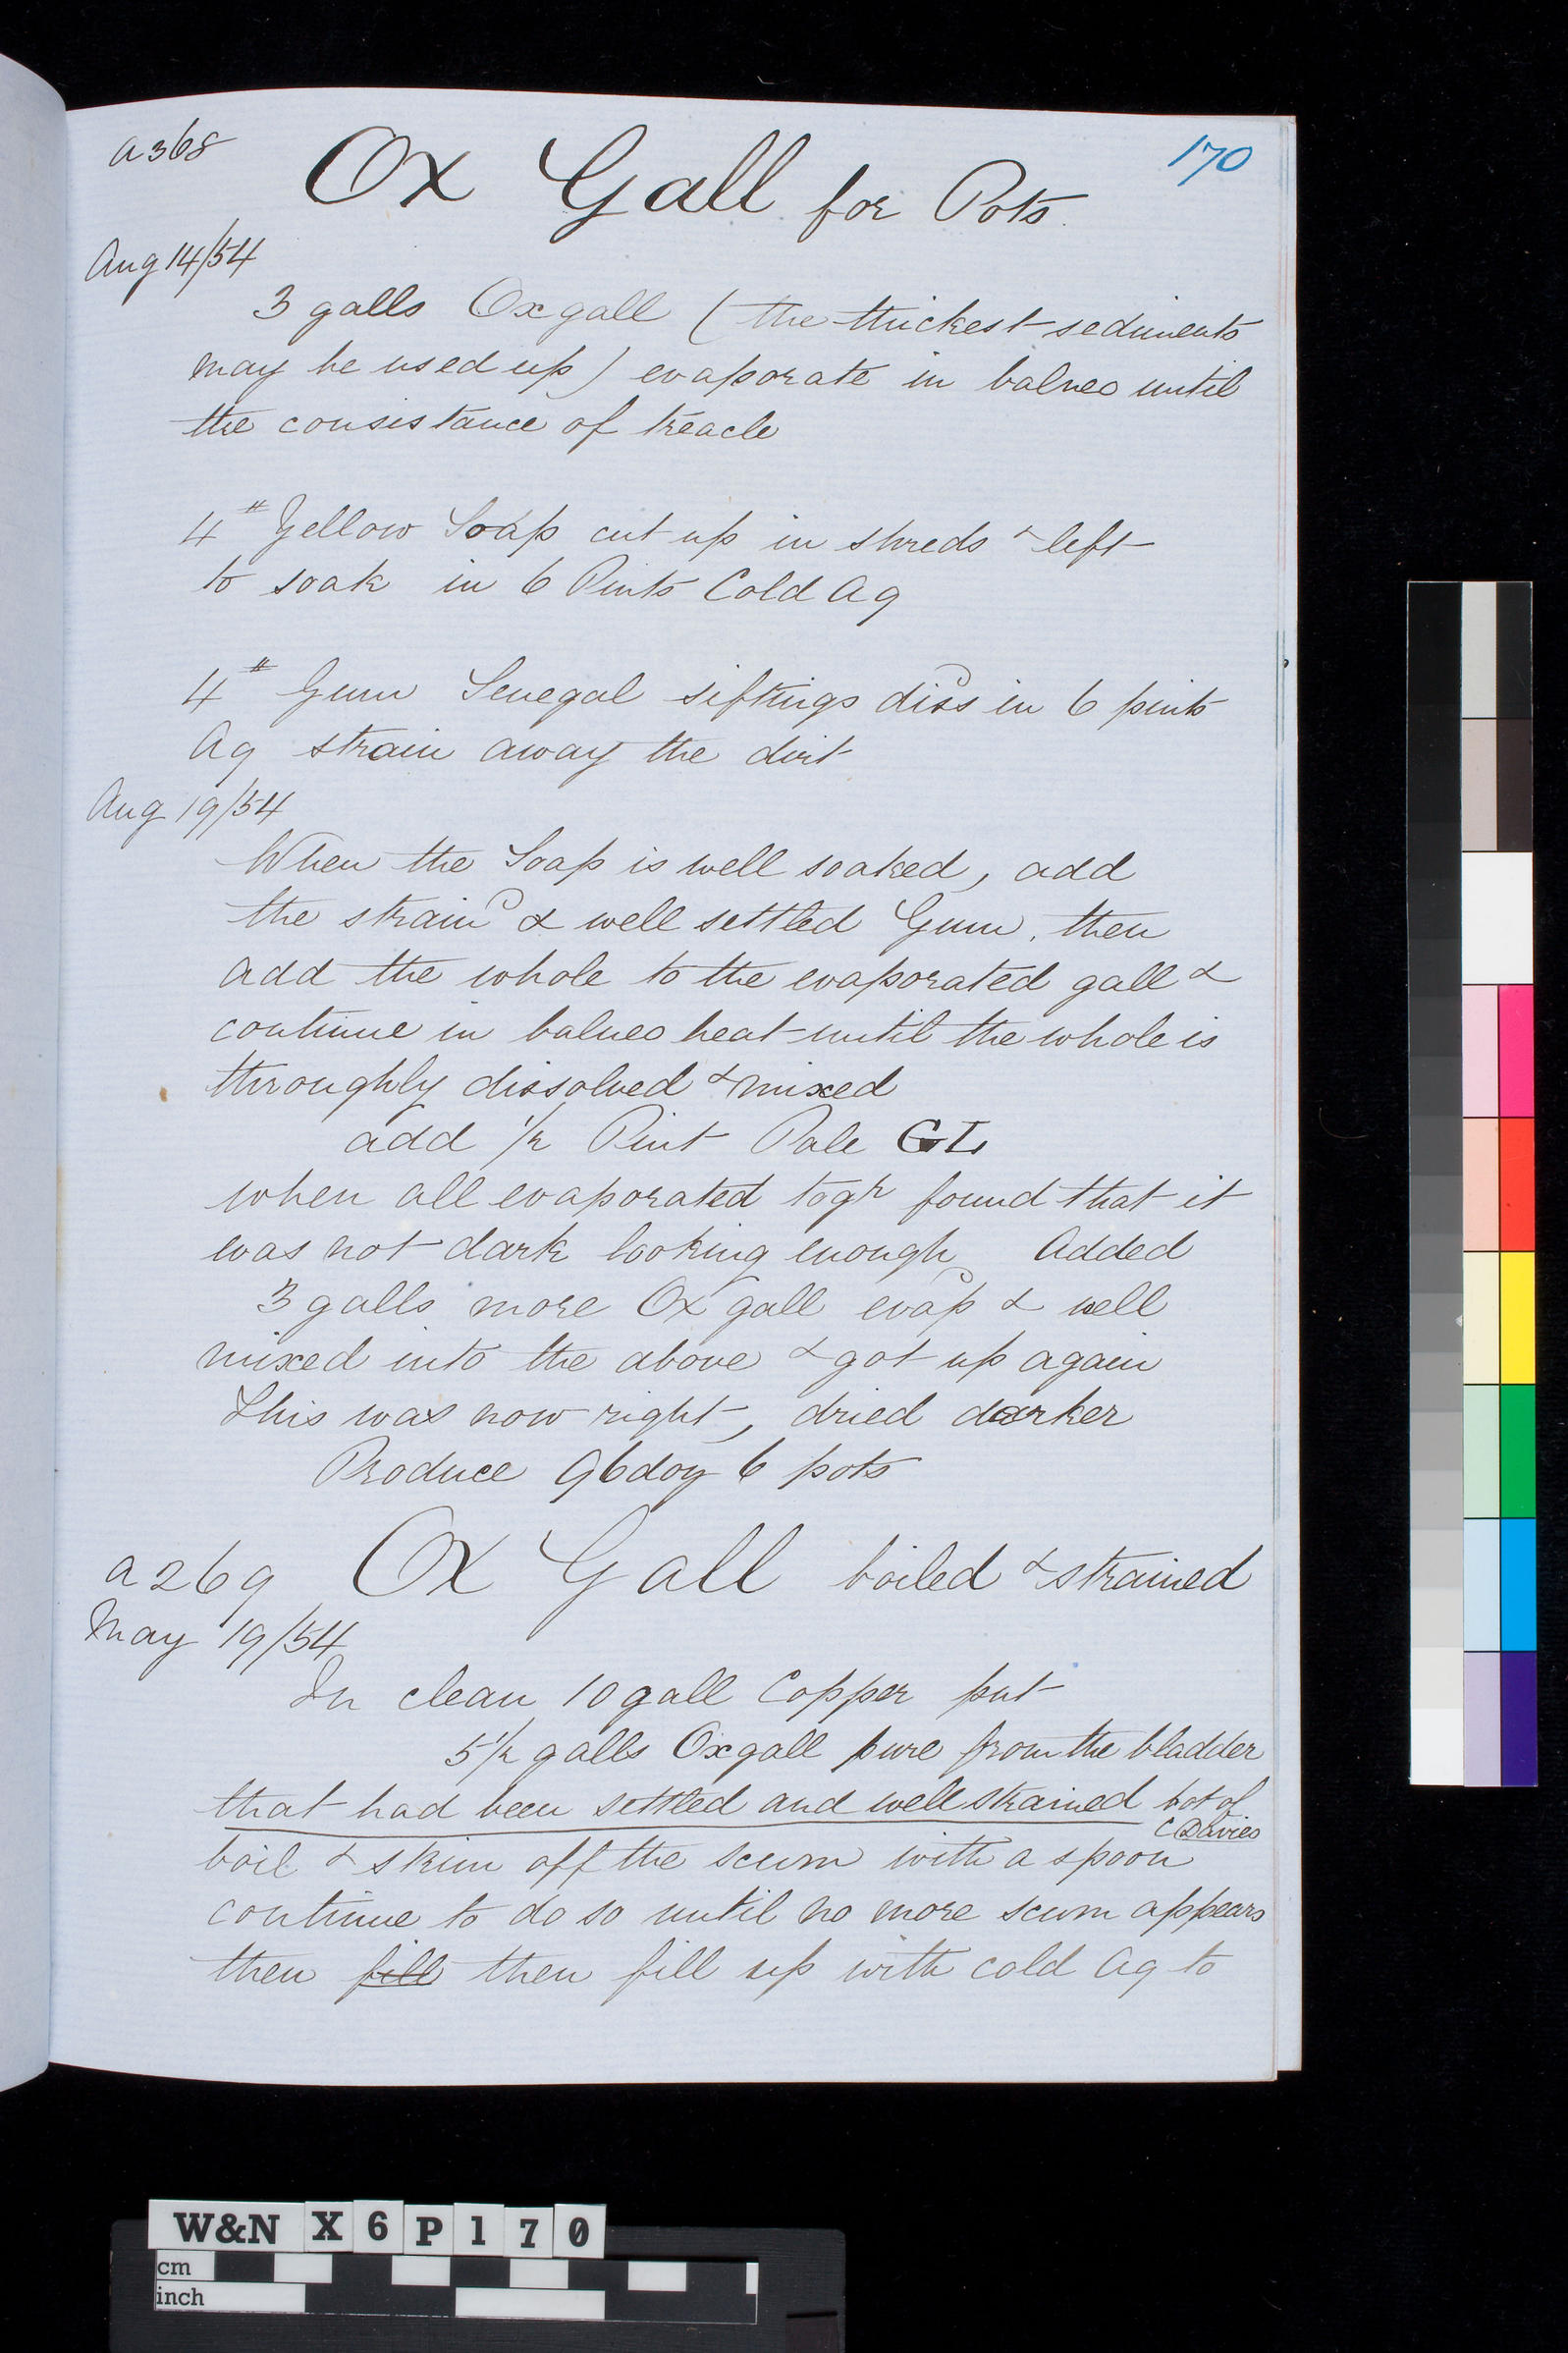 a368
170
Ox Gall for Pots.
Aug 14/54
3 galls Oxgall (the thickest sediments
may be used up) evaporate in balneo until
the consistance of treacle
4# Yellow Soap cut up in shreds & left
to soak in 6 Pints Cold Aq
4# Gum Senegal siftings dissd in 6 pints
Aq strain away the dirt
Aug 19/54
When the Soap is well soaked, add
the straind & well settled Gum, then
add the whole to the evaporated gall &
continue in balneo heat until the whole is
throughly dissolved & mixed
add 1/2 Pint Pale GL
when all evaporated togr found that it
was not dark looking enough Added
3 galls more Ox gall evapd & well
mixed into the above & got up again
This was now right, dried darker
Produce 96 doz 6 pots
a269 Ox Gall boiled & strained
May 19/54
In clean 10 gall Copper put
5 1/2 galls Oxgall pure from the bladder
that had been settled and well strained bot of
C Davies
boil & skim off the scum with a spoon
continue to do so until no more scum appears
then fill then fill up with cold Aq to
W&N X6P170
cm
inch